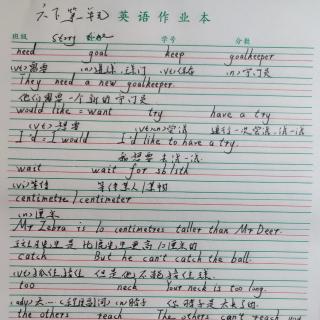 六下第一单元 英语作业本
班级 Story 学号 分数
need goal keep goalkeeper
(vt)需要 (n)进球,球门 (vt)保存 (n)守门员
They need a new goalkeeper.
他们需要一个新的守门员
would like = want try have a try
(vt)想要 (vt)(n)尝试 进行一次尝试,试一试
I'd = I would I'd like to have a try.
我想要去试一试.
wait wait for sb/sth
(vi)等待 等待某人/某物
centimetre/centimeter
(n)厘米
Mr Zebra is 10 centimetres taller than Mr Deer.
斑马先生是比鹿先生更高10厘米的
catch But he can't catch the ball.
(vt)抓住,接住 但是他不能接住球.
too neck Your neck is too long.
(adv)太 (n)脖子 你脖子是太长了.
the others reach The others can't reach